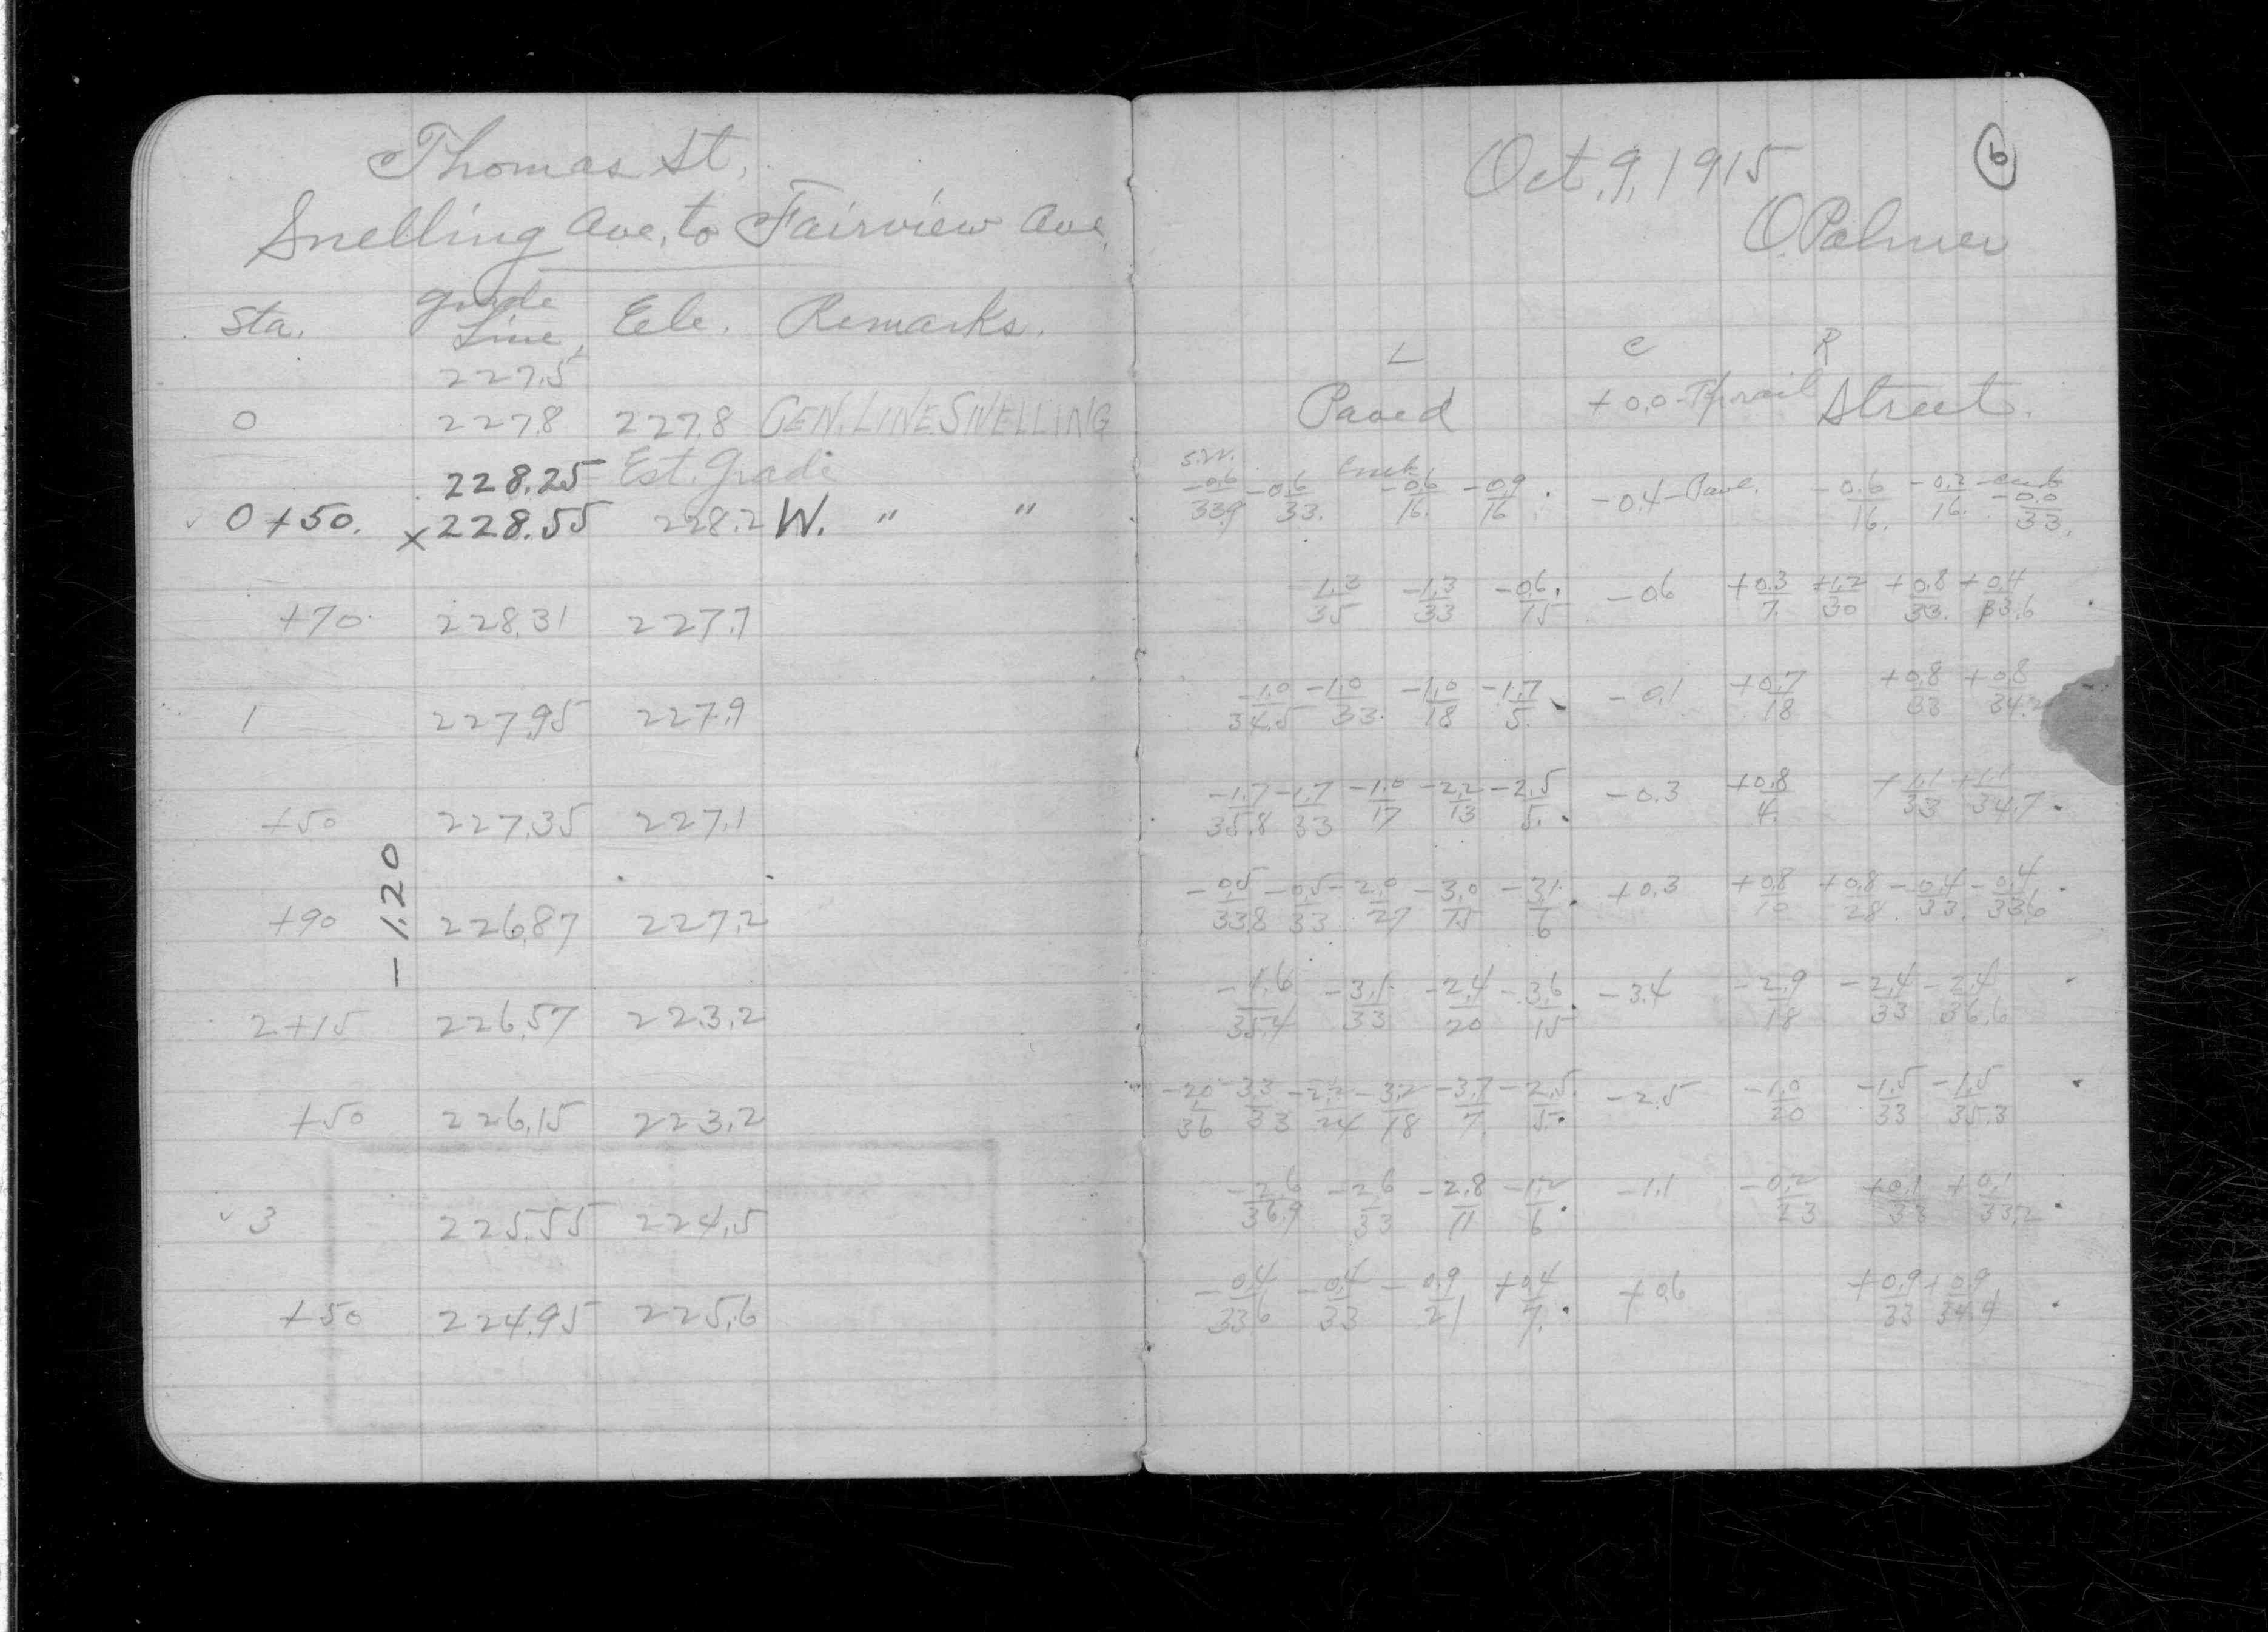 Thomas St.
Snelling Ave. to Fairview Ave.
Sta. Grade Line Ele. Remarks.
227.5
0 227.8 227.8 CEN. LINE SNELLING
228.25 Est. Grade
0+50. x228.55 228.2 W. " "
+70 228.31 227.7
1 227.95 227.9
+50 227.35 227.1
-1.20
+90 226.87 227.2
2+15 226.57 223.2
+50 226.15 223.2
3 225.55 224.5
+50 224.95 225.6
Oct. 9, 1915 6
O. Palmer
L C R
Paved +0.0 - T/p. rail Street.
S.W.
-0.6/33.9 -0.6/33. -0.6/16. -0.9/16 -0.4 - Pave. -0.6/16. -0.2/16. -0.0/33.
-1.3/35 -1.3/33 -0.6/15 -0.6 +0.3/7. +1.2/30 +0.8/33. +0.4/33.6
-1.0/34.5 -1.0/33. -1.0/18 -1.7/5. -0.1 +0.7/18 +0.8/33 +0.8/34.2
-1.7/35.8 -1.7/33 -1.0/17 -2.2/13 -2.5/5. -0.3 +0.8/4. +1.1/33 +1.1/34.7
-0.5/33.8 -0.5/33 -2.0/27 -3.0/15 -3.1/6 +0.3 +0.8/10 +0.8/28. -0.4/33. -0.4/33.6
-1.6/35.4 -3.1/33 -2.4/20 -3.6/15 -3.4 -2.9/18 -2.4/33 -2.4/36.6
-2.0/36 -3.3/33 -2.2/24 -3.2/18 -3.7/7. -2.5/5. -2.5 -1.0/20 -1.5/33 -1.5/35.3
-2.6/36.9 -2.6/33 -2.8/11 -1.2/6 -1.1 -0.2/23 +0.1/33 +0.1/33.2
-0.4/33.6 -0.4/33 -0.9/21 +0.4/7. +0.6 +0.9/33 +0.9/34.4